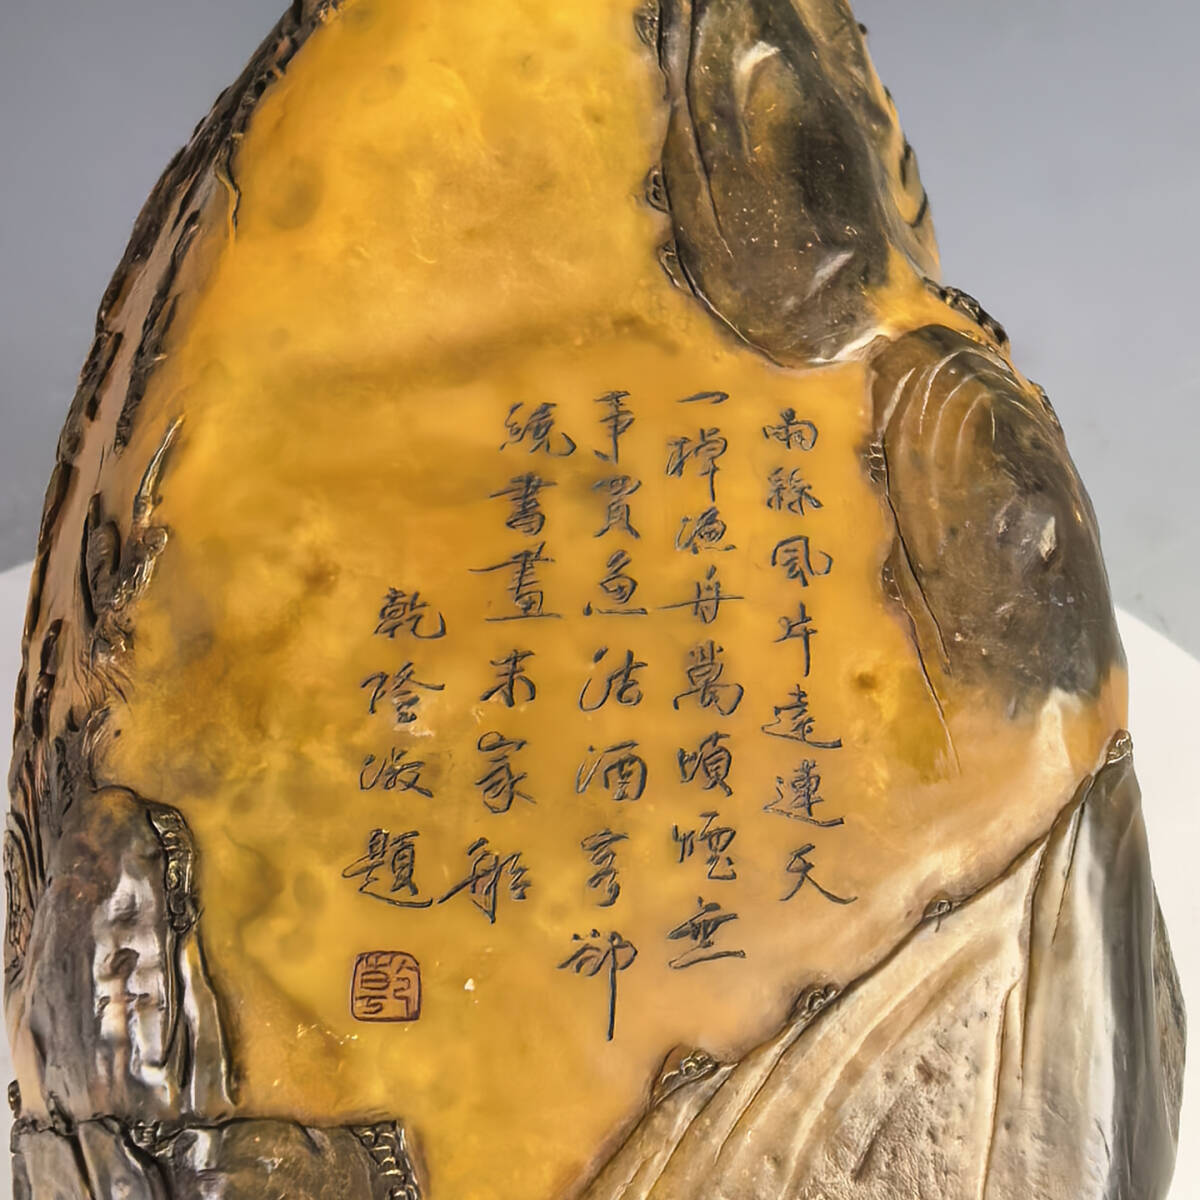 雨絲風片遠連天
一棹漁舟萬頃煙無
事買魚沽酒客卻
繞書畫米家船
乾隆御題
乾